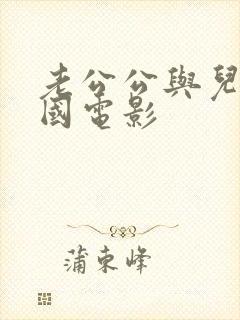 老公公與兒
國電影
蒲東峰